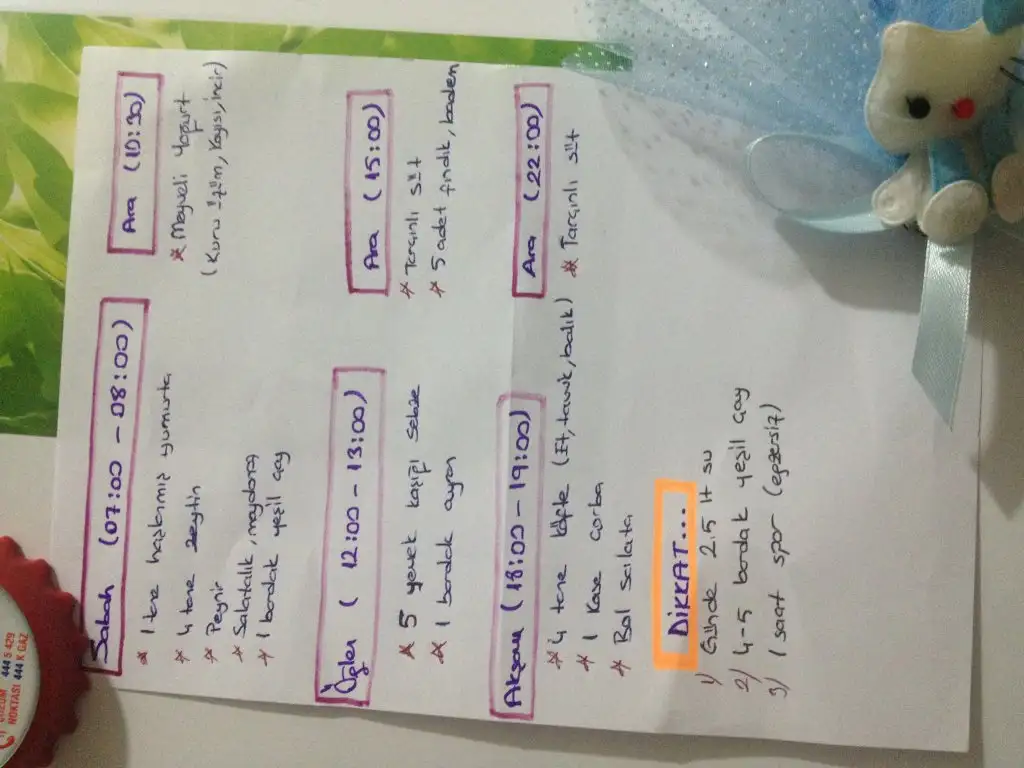 Sabah (07:00 - 08:00)
* 1 tane haşlanmış yumurta
* 4 tane zeytin
* Peynir
* Salatalık, maydanoz
* 1 bardak yeşil çay
Ara (10:30)
* Meyveli yoğurt
(Kuru üzüm, kayısı, incir)
Öğlen (12:00 - 13:00)
* 5 yemek kaşığı sebze
* 1 bardak ayran
Ara (15:00)
* Tarçınlı süt
* 5 adet fındık, badem
Akşam (18:00 - 19:00)
* 4 tane köfte (Et, tavuk, balık)
* 1 kase çorba
* Bol salata
Ara (22:00)
* Tarçınlı süt
DİKKAT...
1) Günde 2.5 lt su
2) 4-5 bardak yeşil çay
3) 1 saat spor (egzersiz)
444 5 429
NOKTASI 444 K GAZ